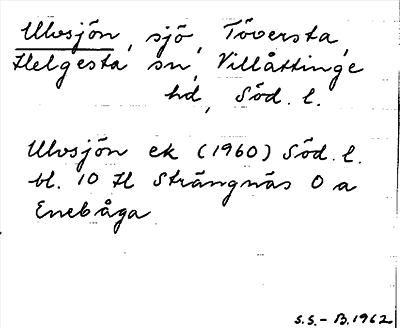 Ulvsjön, sjö, Töversta,
Helgesta sn, Villåttinge
hd, Söd. l.
Ulvsjön ek (1960) Söd. l.
bl. 10 H Strängnäs O a
Enebåga
S.S. - B. 1962